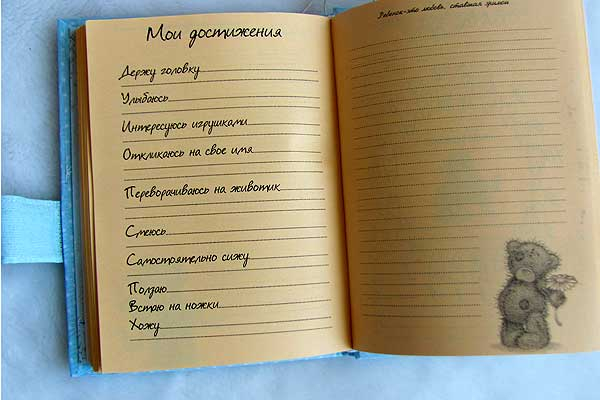 Мои достижения
Держу головку
Улыбаюсь
Интересуюсь игрушками
Откликаюсь на свое имя
Переворачиваюсь на животик
Смеюсь
Самостоятельно сижу
Ползаю
Встаю на ножки
Хожу
Ребенок-это любовь, ставшая зримой